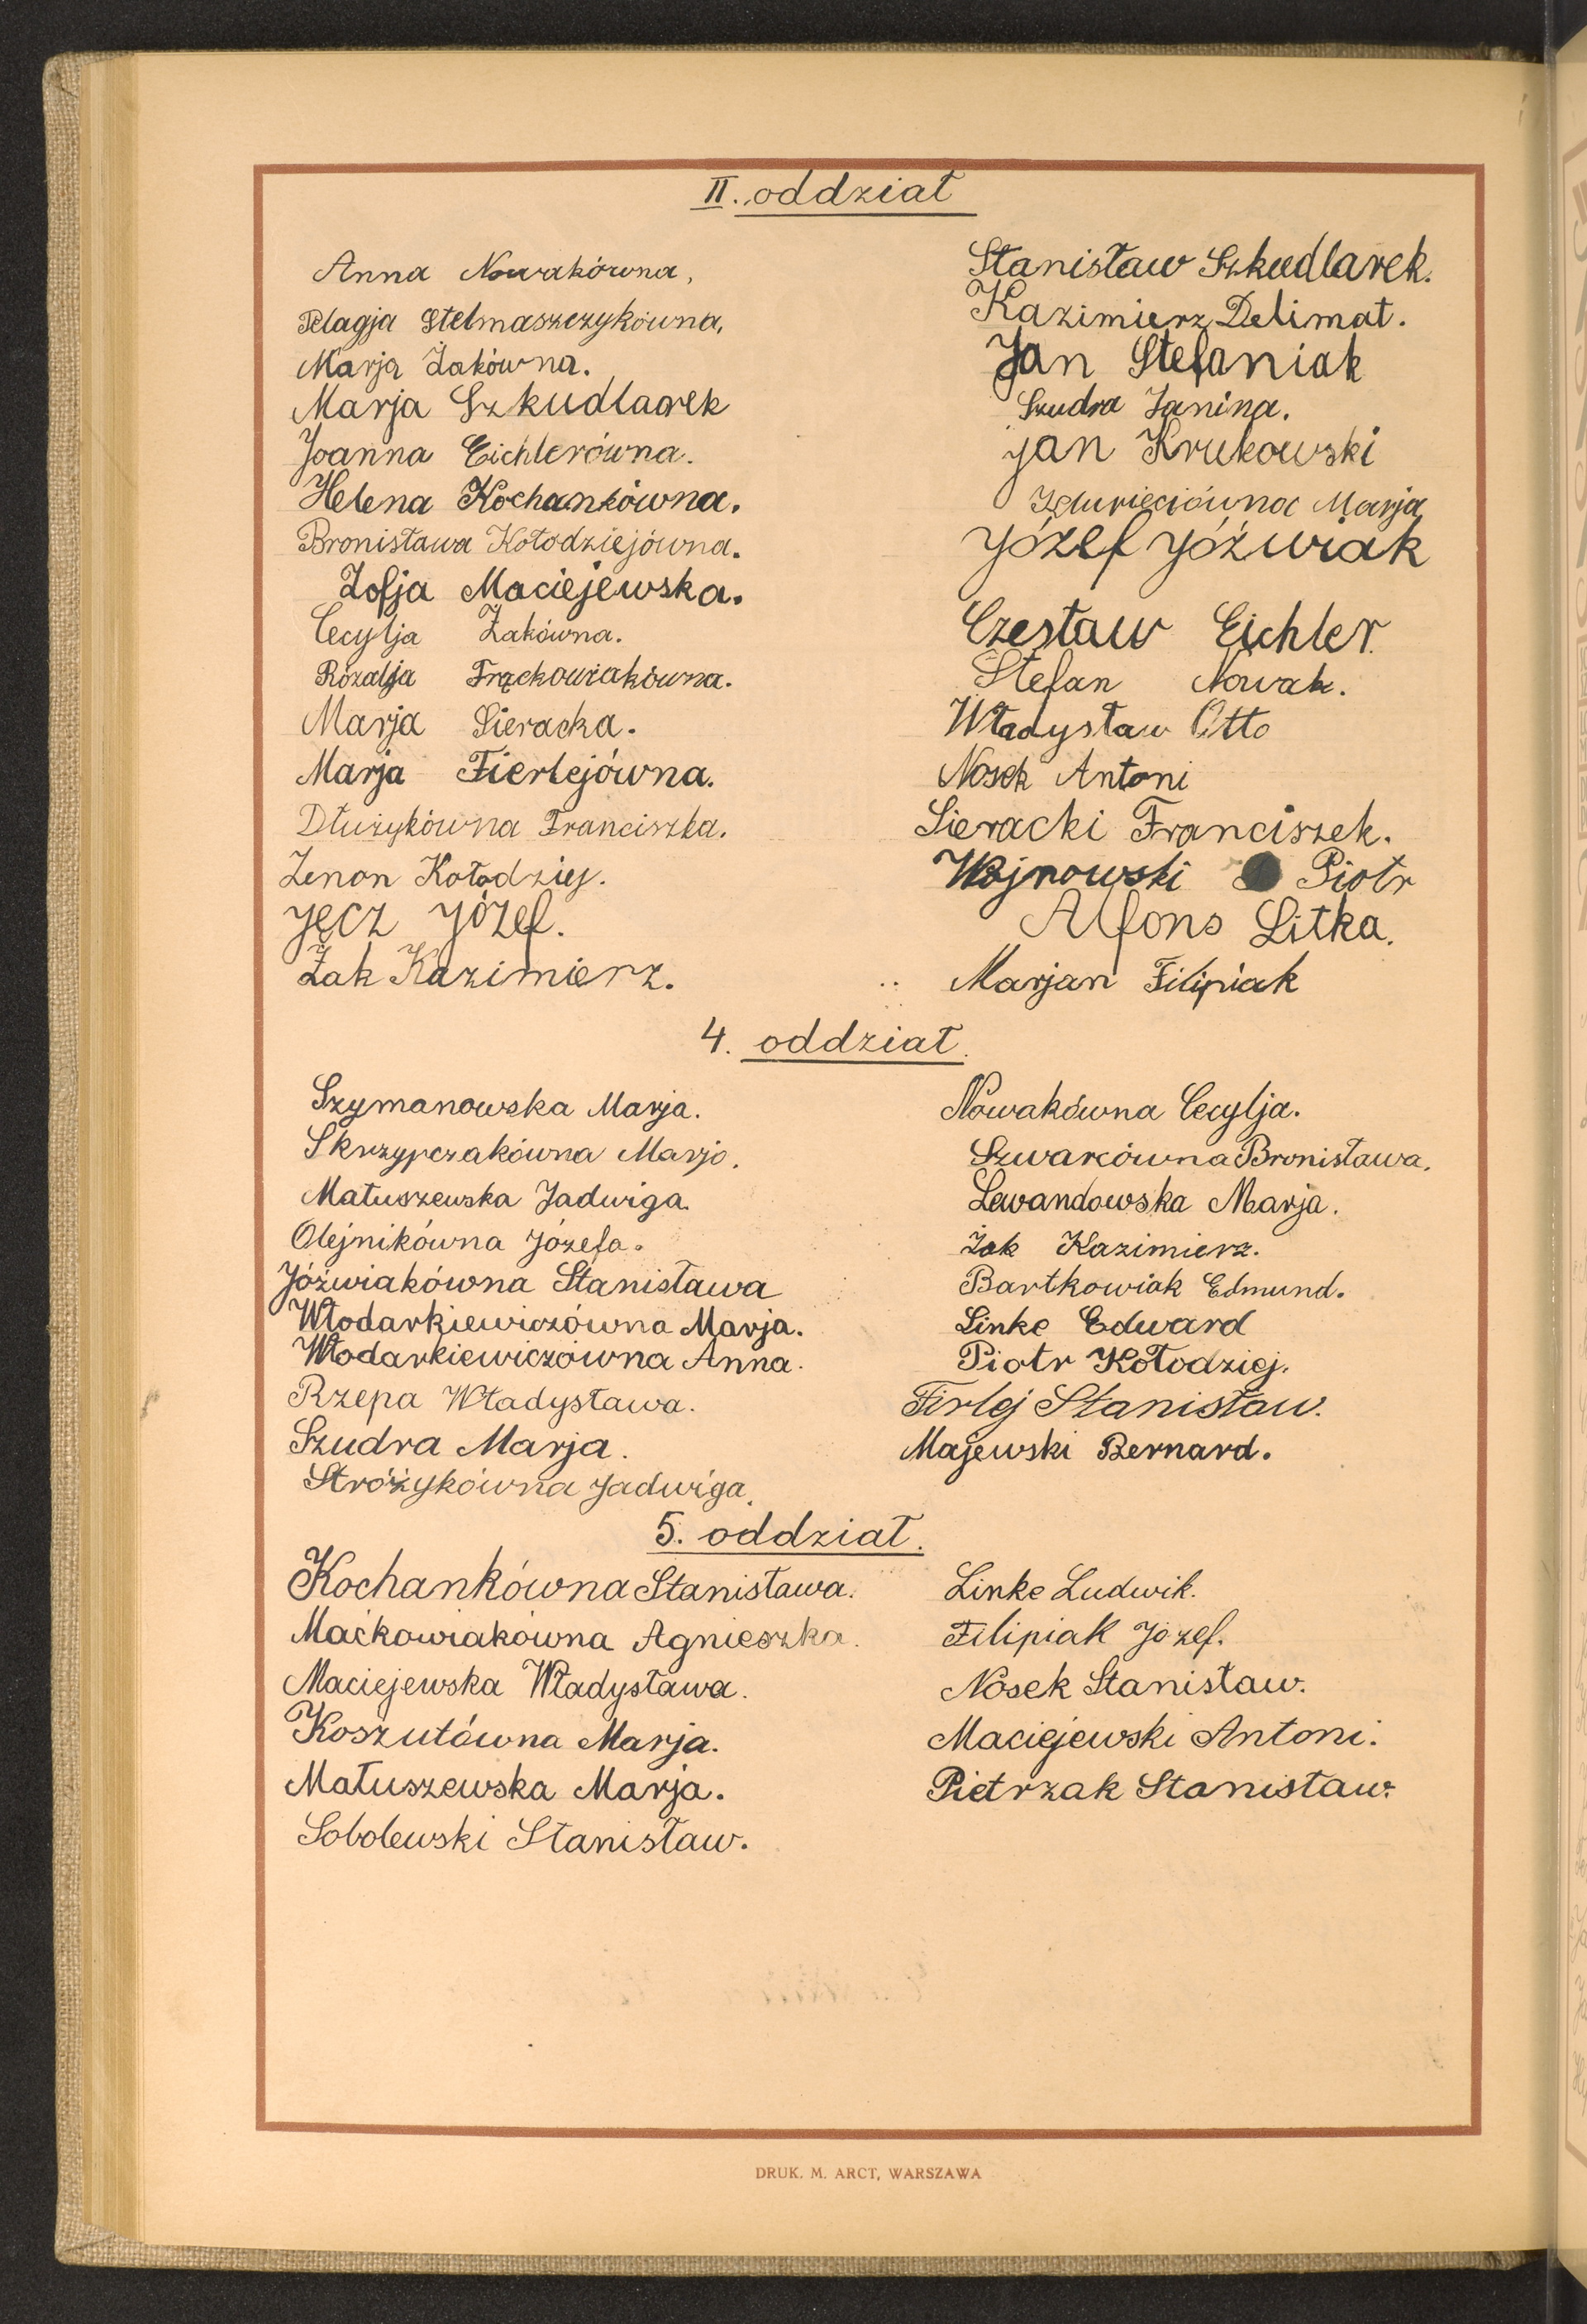 II. oddział
Anna Nowakówna,
Pelagja Stelmaszczykówna,
Marja Żakówna.
Marja Szkudlarek
Joanna Eichlerówna.
Helena Kochankówna.
Bronisława Kołodziejówna.
Zofja Maciejewska.
Cecylja Żakówna.
Rozalja Frąckowiakówna.
Marja Sieracka.
Marja Fierlejówna.
Dłużykówna Franciszka.
Zenon Kołodziej.
Jęcz Józef.
Żak Kazimierz.
Stanisław Szkudlarek.
Kazimierz Delimat.
Jan Stefaniak
Szudra Janina.
Jan Krukowski
Marja
Józef Jóźwiak
Czesław Eichler.
Stefan Nowak.
Władysław Otto
Nosek Antoni
Sieracki Franciszek.
Wojnowski Piotr
Alfons Litka.
Marjan Filipiak
4. oddział.
Szymanowska Marja.
Skrzypczakówna Marja.
Matuszewska Jadwiga.
Olejnikówna Józefa.
Jóźwiakówna Stanisława
Włodarkiewiczówna Marja.
Włodarkiewiczówna Anna.
Rzepa Władysława.
Szudra Marja.
Stróżykówna Jadwiga.
Nowakówna Cecylja.
Szwarcówna Bronisława.
Lewandowska Marja.
Żak Kazimierz.
Bartkowiak Edmund.
Linke Edward
Piotr Kołodziej.
Firlej Stanisław.
Majewski Bernard.
5. oddział.
Kochankówna Stanisława.
Maćkowiakówna Agnieszka.
Maciejewska Władysława.
Koszutówna Marja.
Matuszewska Marja.
Sobolewski Stanisław.
Linke Ludwik.
Filipiak Józef.
Nosek Stanisław.
Maciejewski Antoni.
Pietrzak Stanisław.
DRUK. M. ARCT, WARSZAWA